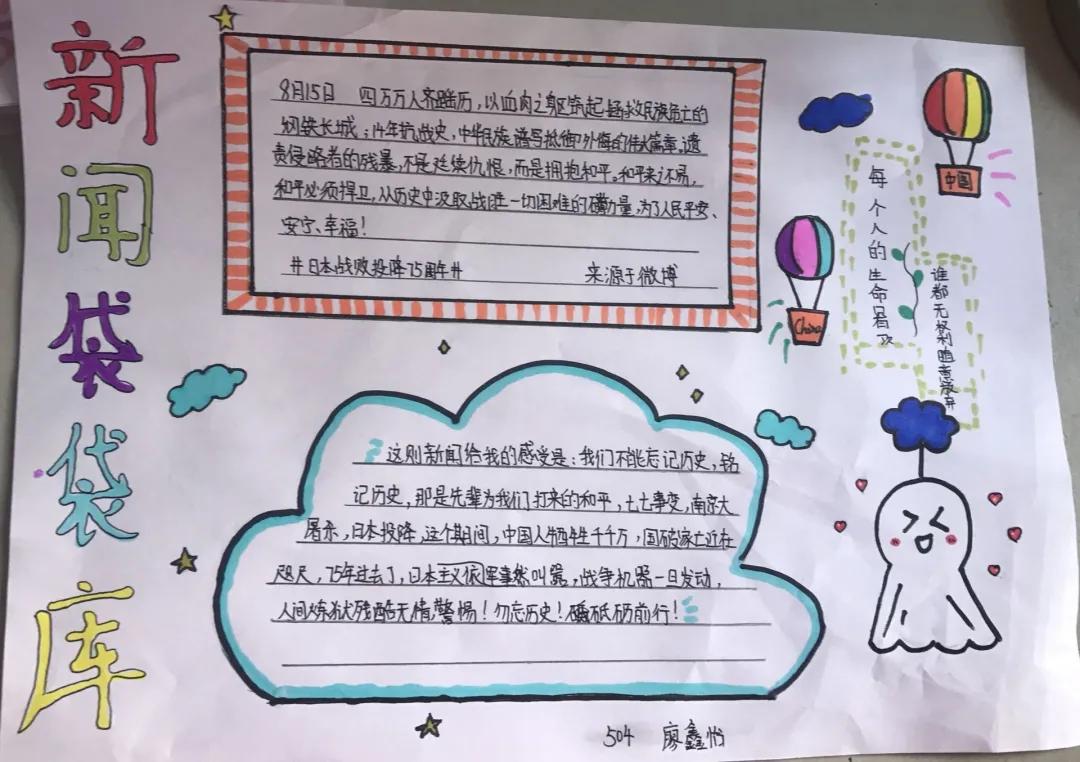 新闻袋袋库
8月15日 四万万人齐蹈厉，以血肉之躯筑起拯救民族危亡的
钢铁长城；14年抗战史，中华民族谱写抵御外侮的伟大篇章，谴
责侵略者的残暴，不是延续仇恨，而是拥抱和平。和平来之不易，
和平必须捍卫，从历史中汲取战胜一切困难的力量，为了人民平安、
安宁、幸福！
#日本战败投降75周年# 来源于微博
中国
China
每个人的生命
谁都无权利随意
这则新闻给我的感受是：我们不能忘记历史，铭
记历史，那是先辈为我们打来的和平，七七事变，南京大
屠杀，日本投降，这个期间，中国人牺牲千千万，国破家亡近在
咫尺，75年过去了，日本主义
叫嚣，战争机器一旦发动，
人间炼狱残酷无情，警惕！勿忘历史！砥砺前行！
504 廖鑫怡